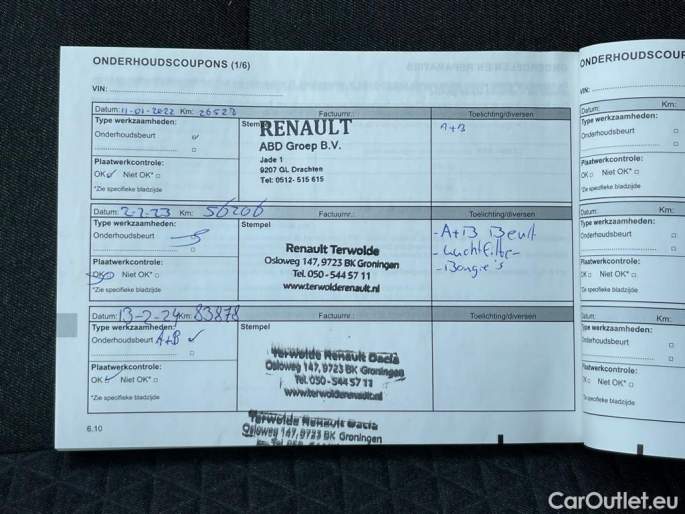 ONDERHOUDSCOUPONS (1/6)
VIN:
Datum: 11-01-2022 Km: 26523 Factuurnr.: Toelichting/diversen
Type werkzaamheden:
Onderhoudsbeurt
Stempel
RENAULT
ABD Groep B.V.
Jade 1
9207 GL Drachten
Tel: 0512- 515 615
A+B
Plaatwerkcontrole:
OK Niet OK*
*Zie specifieke bladzijde
Datum: 2-2-23 Km: 56206 Factuurnr.: Toelichting/diversen
Type werkzaamheden:
Onderhoudsbeurt
Stempel
Renault Terwolde
Osloweg 147, 9723 BK Groningen
Tel. 050 - 544 57 11
www.terwolderenault.nl
- A+B Beurt
- Luchtfilter
- Bougie's
Plaatwerkcontrole:
OK Niet OK*
*Zie specifieke bladzijde
Datum: 13-2-24 Km: 83878 Factuurnr.: Toelichting/diversen
Type werkzaamheden:
Onderhoudsbeurt A+B
Stempel
Terwolde Renault Dacia
Osloweg 147, 9723 BK Groningen
Tel. 050 - 544 57 11
www.terwolderenault.nl
Plaatwerkcontrole:
OK Niet OK*
*Zie specifieke bladzijde
Terwolde Renault Dacia
Osloweg 147, 9723 BK Groningen
6.10
ONDERHOUDSCOUP
VIN:
Datum: Km:
Type werkzaamheden:
Onderhoudsbeurt
Plaatwerkcontrole:
OK Niet OK*
*Zie specifieke bladzijde
Datum: Km:
Type werkzaamheden:
Onderhoudsbeurt
Plaatwerkcontrole:
OK Niet OK*
*Zie specifieke bladzijde
Datum: Km:
Type werkzaamheden:
Onderhoudsbeurt
Plaatwerkcontrole:
OK Niet OK*
*Zie specifieke bladzijde
CarOutlet.eu